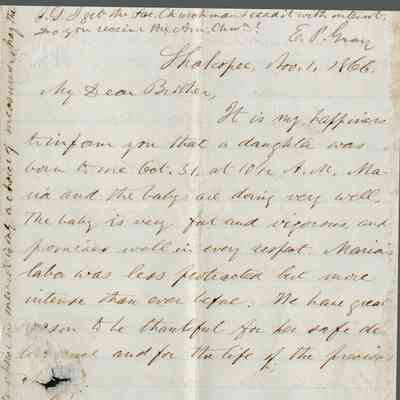 P.S. I get the Am. Churchman & read it with interest.
Do you receive the Am. Chm.?
E. P. Gray
Shakopee, Nov. 1, 1866.
My Dear Brother,
It is my happiness
to inform you that a daughter was
born to me Oct. 31, at 10½ A.M. Ma-
ria and the baby are doing very well.
The baby is very fat and vigorous, and
promises well in every respect. Maria's
labor was less protracted but more
intense than ever before. We have great
reason to be thankful for her safe de
liverance and for the life of the precious